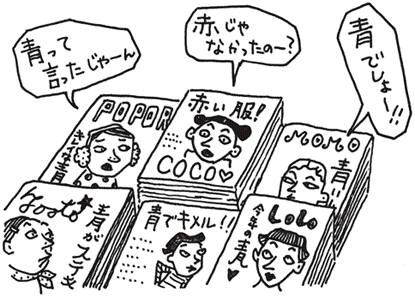 青って
言ったじゃーん
赤じゃ
なかったのー?
青
でしょー!!
POPOR
赤い服!
COCO♡
MOMO
青い!!
青が
青でキメル!!
LoLo
今年の青♥